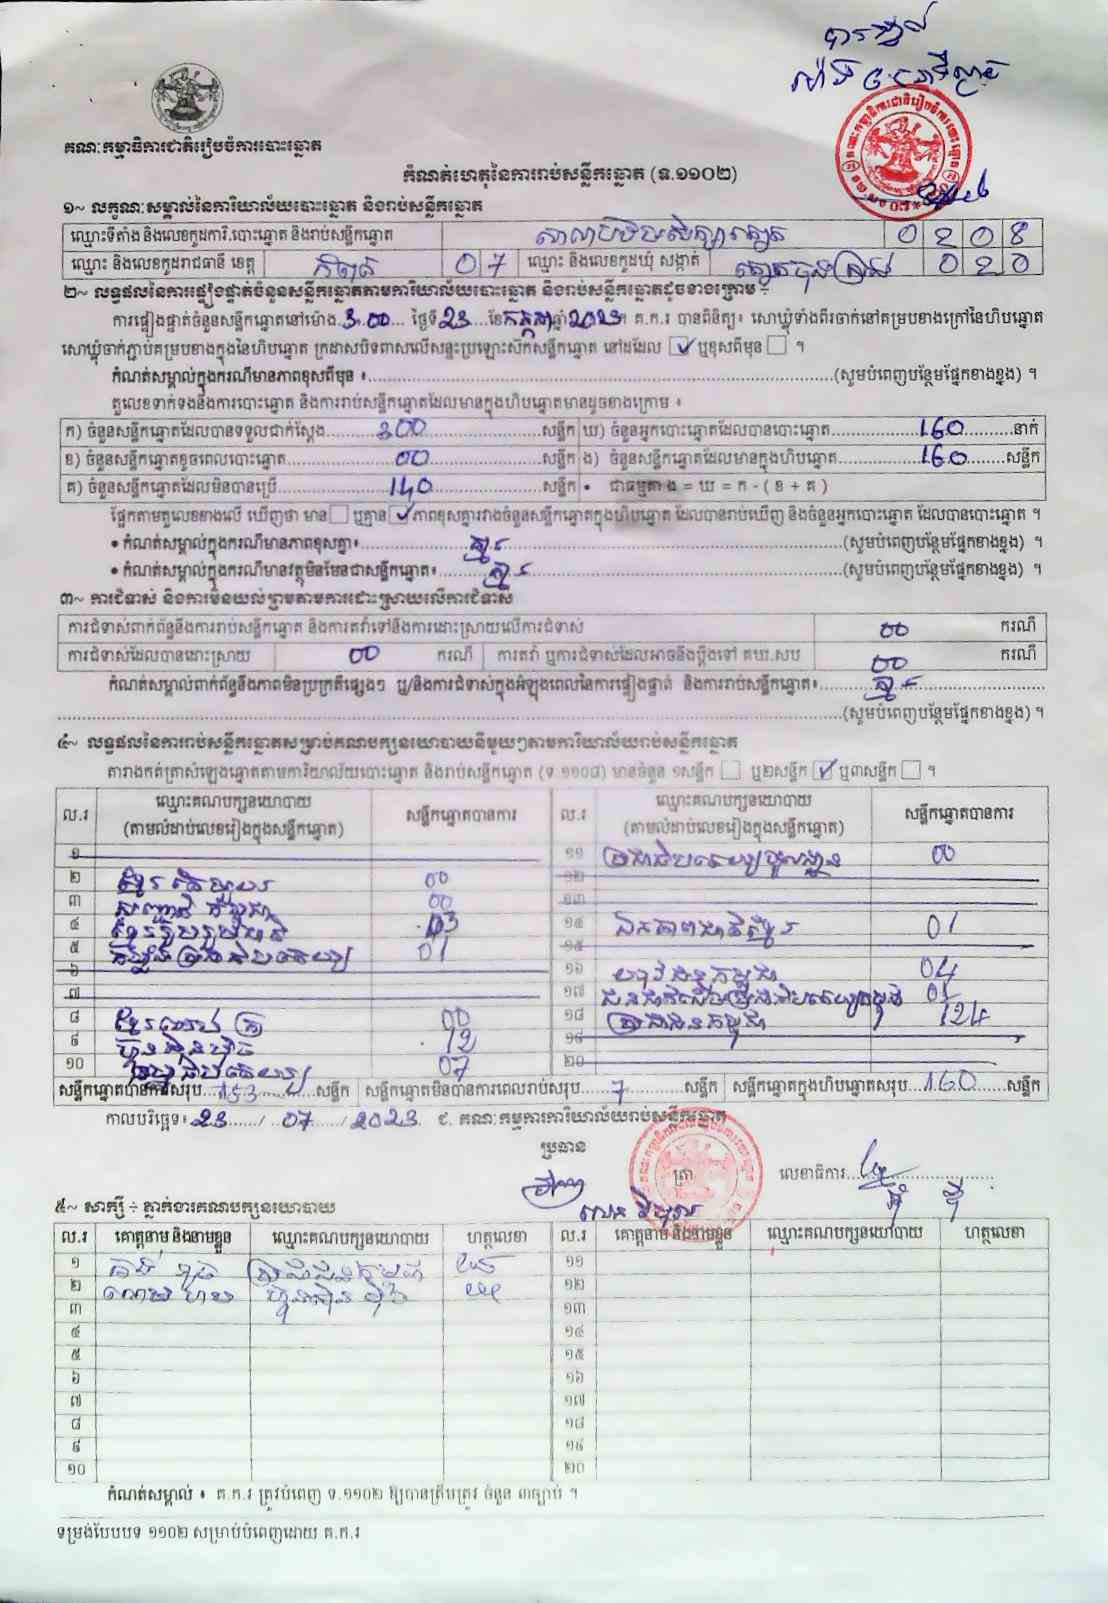 គណៈកម្មាធិការជាតិរៀបចំការបោះឆ្នោត
កំណត់ហេតុនៃការរាប់សន្លឹកឆ្នោត (ទ.១១០២)
១~ លក្ខណៈសម្គាល់នៃការិយាល័យបោះឆ្នោត និងរាប់សន្លឹកឆ្នោត
ឈ្មោះទីតាំង និងលេខកូដការិ.បោះឆ្នោត និងរាប់សន្លឹកឆ្នោត 0208
ឈ្មោះ និងលេខកូដរាជធានី ខេត្ត កំពត 07 ឈ្មោះ និងលេខកូដឃុំ សង្កាត់ 020
២~ លទ្ធផលនៃការផ្ទៀងផ្ទាត់ចំនួនសន្លឹកឆ្នោតតាមការិយាល័យបោះឆ្នោត និងរាប់សន្លឹកឆ្នោតដូចខាងក្រោម ÷
ការផ្ទៀងផ្ទាត់ចំនួនសន្លឹកឆ្នោតនៅម៉ោង 3.00 ថ្ងៃទី 23 ខែ កក្កដា ឆ្នាំ 2023 ។ គ.ក.រ បានពិនិត្យ៖ សោឃ្លុំទាំងពីរចាក់នៅគម្របខាងក្រៅនៃហិបឆ្នោត
សោឃ្លុំចាក់ភ្ជាប់គម្របខាងក្នុងនៃហិបឆ្នោត ក្រដាសបិទពាសលើសន្ទះប្រឡោះសិកសន្លឹកឆ្នោត នៅដដែល ☑ ឬខុសពីមុន ☐ ។
កំណត់សម្គាល់ក្នុងករណីមានភាពខុសពីមុន ៖ (សូមបំពេញបន្ថែមផ្នែកខាងខ្នង) ។
តួលេខទាក់ទងនឹងការបោះឆ្នោត និងការរាប់សន្លឹកឆ្នោតដែលមានក្នុងហិបឆ្នោតមានដូចខាងក្រោម ៖
ក) ចំនួនសន្លឹកឆ្នោតដែលបានទទួលជាក់ស្តែង 300 សន្លឹក ឃ) ចំនួនអ្នកបោះឆ្នោតដែលបានបោះឆ្នោត 160 នាក់
ខ) ចំនួនសន្លឹកឆ្នោតខូចពេលបោះឆ្នោត 00 សន្លឹក ង) ចំនួនសន្លឹកឆ្នោតដែលមានក្នុងហិបឆ្នោត 160 សន្លឹក
គ) ចំនួនសន្លឹកឆ្នោតដែលមិនបានប្រើ 140 សន្លឹក • ជាធម្មតា ង = ឃ = ក - ( ខ + គ )
ផ្អែកតាមតួលេខខាងលើ ឃើញថា មាន ☐ ឬគ្មាន ☑ ភាពខុសគ្នារវាងចំនួនសន្លឹកឆ្នោតក្នុងហិបឆ្នោត ដែលបានរាប់ឃើញ និងចំនួនអ្នកបោះឆ្នោត ដែលបានបោះឆ្នោត ។
• កំណត់សម្គាល់ក្នុងករណីមានភាពខុសគ្នា៖ គ្មាន (សូមបំពេញបន្ថែមផ្នែកខាងខ្នង) ។
• កំណត់សម្គាល់ក្នុងករណីមានវត្ថុមិនមែនជាសន្លឹកឆ្នោត៖ គ្មាន (សូមបំពេញបន្ថែមផ្នែកខាងខ្នង) ។
៣~ ការជំទាស់ និងការមិនយល់ព្រមតាមការដោះស្រាយលើការជំទាស់
ការជំទាស់ពាក់ព័ន្ធនឹងការរាប់សន្លឹកឆ្នោត និងការតវ៉ាទៅនឹងការដោះស្រាយលើការជំទាស់ 00 ករណី
ការជំទាស់ដែលបានដោះស្រាយ 00 ករណី ការតវ៉ា ឬការជំទាស់ដែលអាចនឹងប្តឹងទៅ គឃ.សប 00 ករណី
កំណត់សម្គាល់ពាក់ព័ន្ធនឹងភាពមិនប្រក្រតីផ្សេងៗ ឬ/និងការជំទាស់ក្នុងអំឡុងពេលនៃការផ្ទៀងផ្ទាត់ និងការរាប់សន្លឹកឆ្នោត៖ គ្មាន
(សូមបំពេញបន្ថែមផ្នែកខាងខ្នង) ។
៤~ លទ្ធផលនៃការរាប់សន្លឹកឆ្នោតសម្រាប់គណបក្សនយោបាយនីមួយៗតាមការិយាល័យរាប់សន្លឹកឆ្នោត
តារាងកត់ត្រាសំឡេងឆ្នោតតាមការិយាល័យបោះឆ្នោត និងរាប់សន្លឹកឆ្នោត (ទ ១១០៨) មានចំនួន ១សន្លឹក ☐ ឬ២សន្លឹក ☑ ឬ៣សន្លឹក ☐ ។
ល.រ ឈ្មោះគណបក្សនយោបាយ (តាមលំដាប់លេខរៀងក្នុងសន្លឹកឆ្នោត) សន្លឹកឆ្នោតបានការ ល.រ ឈ្មោះគណបក្សនយោបាយ (តាមលំដាប់លេខរៀងក្នុងសន្លឹកឆ្នោត) សន្លឹកឆ្នោតបានការ
១ ១១ 00
២ 00 ១២
៣ 00 ១៣
៤ ខ្មែររួបរួមជាតិ 03 ១៤ ឯកភាពជាតិខ្មែរ 01
៥ កម្លាំងប្រជាធិបតេយ្យ 01 ១៥
៦ ១៦ យុវជនកម្ពុជា 04
៧ ១៧ 01
៨ 00 ១៨ ប្រជាជនកម្ពុជា 124
៩ ហ៊្វុនស៊ិនប៉ិច 12 ១៩
១០ 07 ២០
សន្លឹកឆ្នោតបានការសរុប 153 សន្លឹក សន្លឹកឆ្នោតមិនបានការពេលរាប់សរុប 7 សន្លឹក សន្លឹកឆ្នោតក្នុងហិបឆ្នោតសរុប 160 សន្លឹក
កាលបរិច្ឆេទ៖ 23 / 07 / 2023 ជ. គណៈកម្មការការិយាល័យរាប់សន្លឹកឆ្នោត
ប្រធាន ត្រា លេខាធិការ
៥~ សាក្សី ÷ ភ្នាក់ងារគណបក្សនយោបាយ
ល.រ គោត្តនាម និងនាមខ្លួន ឈ្មោះគណបក្សនយោបាយ ហត្ថលេខា ល.រ គោត្តនាម និងនាមខ្លួន ឈ្មោះគណបក្សនយោបាយ ហត្ថលេខា
១ ប្រជាជនកម្ពុជា ១១
២ ហ៊្វុនស៊ិនប៉ិច ១២
៣ ១៣
៤ ១៤
៥ ១៥
៦ ១៦
៧ ១៧
៨ ១៨
៩ ១៩
១០ ២០
កំណត់សម្គាល់ ៖ គ.ក.រ ត្រូវបំពេញ ទ.១១០២ ឱ្យបានត្រឹមត្រូវ ចំនួន ៣ច្បាប់ ។
ទម្រង់បែបបទ ១១០២ សម្រាប់បំពេញដោយ គ.ក.រ